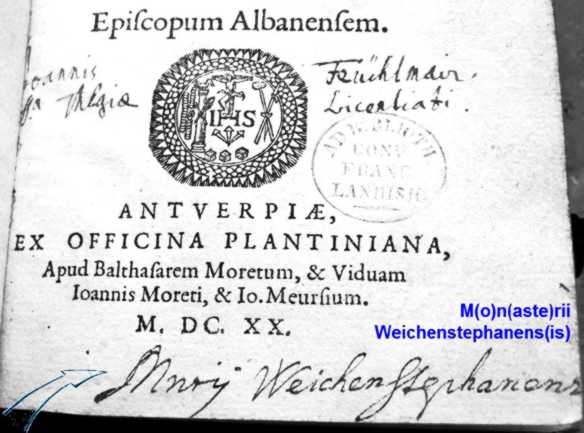 Epiſcopum Albanenſem.
Joannis
Thlgiæ
Früchlmair.
Licentiati.
IHS
AD BIBLIOTH
CONV
FRANC
LANDISH.
ANTVERPIÆ,
EX OFFICINA PLANTINIANA,
Apud Balthaſarem Moretum, & Viduam
Ioannis Moreti, & Io. Meurſium.
M. DC. XX.
M(o)n(aste)rii
Weichenstephanens(is)
Mnrij Weichenstephanens